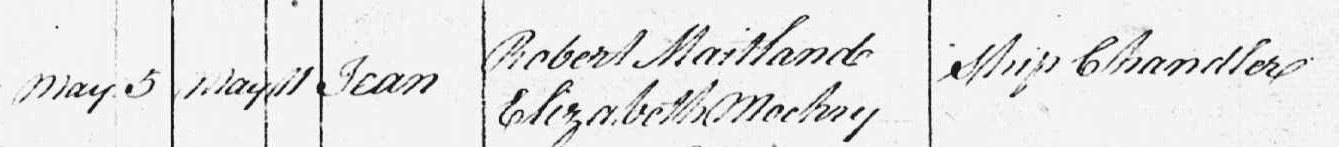 May 5 May 11 Jean Robert Maitland Ship Chandler
Elizabeth Mockry